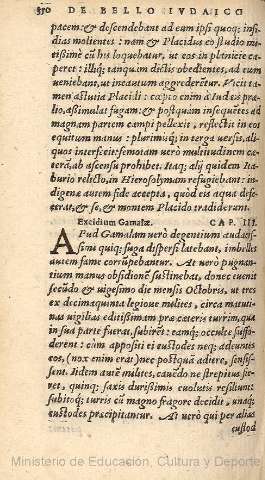 870 DE BELLO IVDAICO
pacem: & descendebant ad eum ipsi quoq; insi-
dias molientes: nam & Placidus eo studio mi-
tissimè cum his loquebatur, ut eos in planicie ca-
peret: illiq; tanquam dictis obedientes, ad eum
ueniebant, ut incautum aggrederētur. Vicit ta-
men astutia Placidi: cœpto enim à Iudæis præ-
lio, assimulat fugam: & postquàm insequētes ad
magnam partem campi pellexit, reflectit in eos
equitum manus: plurimisq; in terga uersis, ali-
quos interfecit: semotam uerò multitudinem ce-
terā, ab ascensu prohibet. Itaq; alij quidem Ita-
burio relicto, in Hierosolymam refugiebant: in-
digenæ autem fide accepta, quòd eos aqua defe-
cerat, & se, & montem Placido tradiderunt.
Excidium Gamalæ. CAP. III.
APud Gamalam uerò degentium audacis-
simi quiq; fuga dispersi latebant, imbelles
autem fame corrūpebantur. At uerò pugnan-
tium manus obsidionē sustinebat, donec euenit
secūdo & uigesimo die mensis Octobris, ut tres
ex decimaquinta legione milites, circa matuti-
nas uigilias editissimam præ cæteris turrim, quæ
in sua parte fuerat, subirēt: eamq; occultè suffo-
derent: cùm appositi ei custodes neq; adeuntes
eos, (nox enim erat) nec postquā adiere, sensis-
sent. Iidem autē milites, cauēdo ne strepitus fie-
ret, quinq; saxis durissimis euolutis resiliunt:
subitoq; turris cū magno fragore decidit, unaq;
custodes præcipitantur. At uerò qui per alias
custod
Ministerio de Educación, Cultura y Deporte